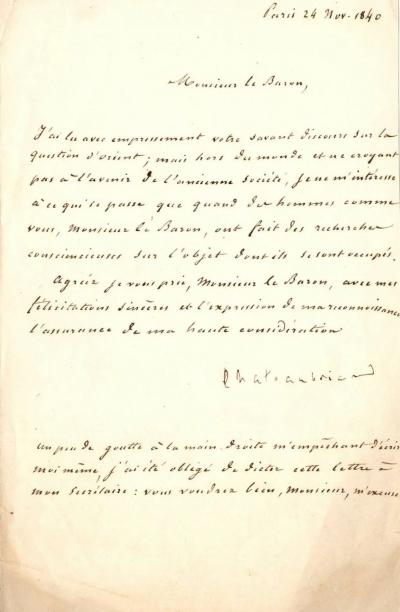 Paris 24 Nov. 1840
Monsieur le Baron,
J'ai lu avec empressement votre savant discours sur la
question d'orient ; mais hors du monde et ne croyant
pas à l'avenir de l'ancienne société, je ne m'intéresse
à ce qui se passe que quand des hommes comme
vous, Monsieur le Baron, ont fait des recherches
consciencieuses sur l'objet dont ils se sont occupés.
Agréez je vous prie, Monsieur le Baron, avec mes
félicitations sincères et l'expression de ma reconnaissance
l'assurance de ma haute considération
Chateaubriand
un peu de goutte à la main droite m'empêchant d'écrire
moi même, j'ai été obligé de dicter cette lettre à
mon Secrétaire : vous voudrez bien, Monsieur, m'excuser